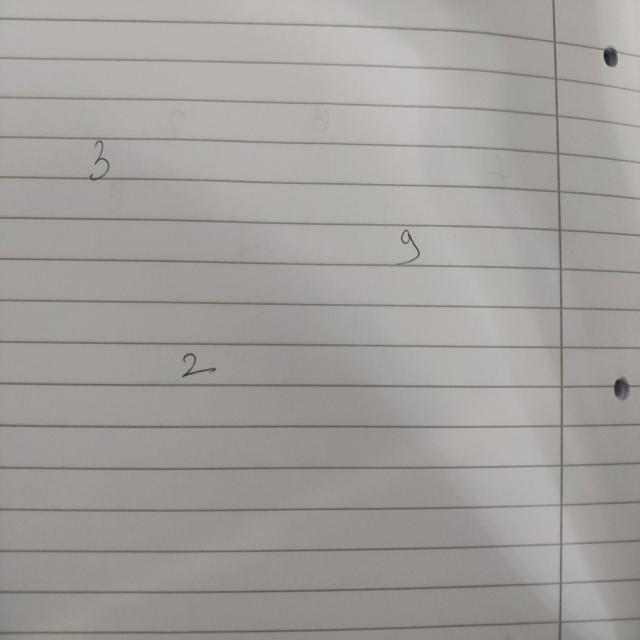 3
9
2